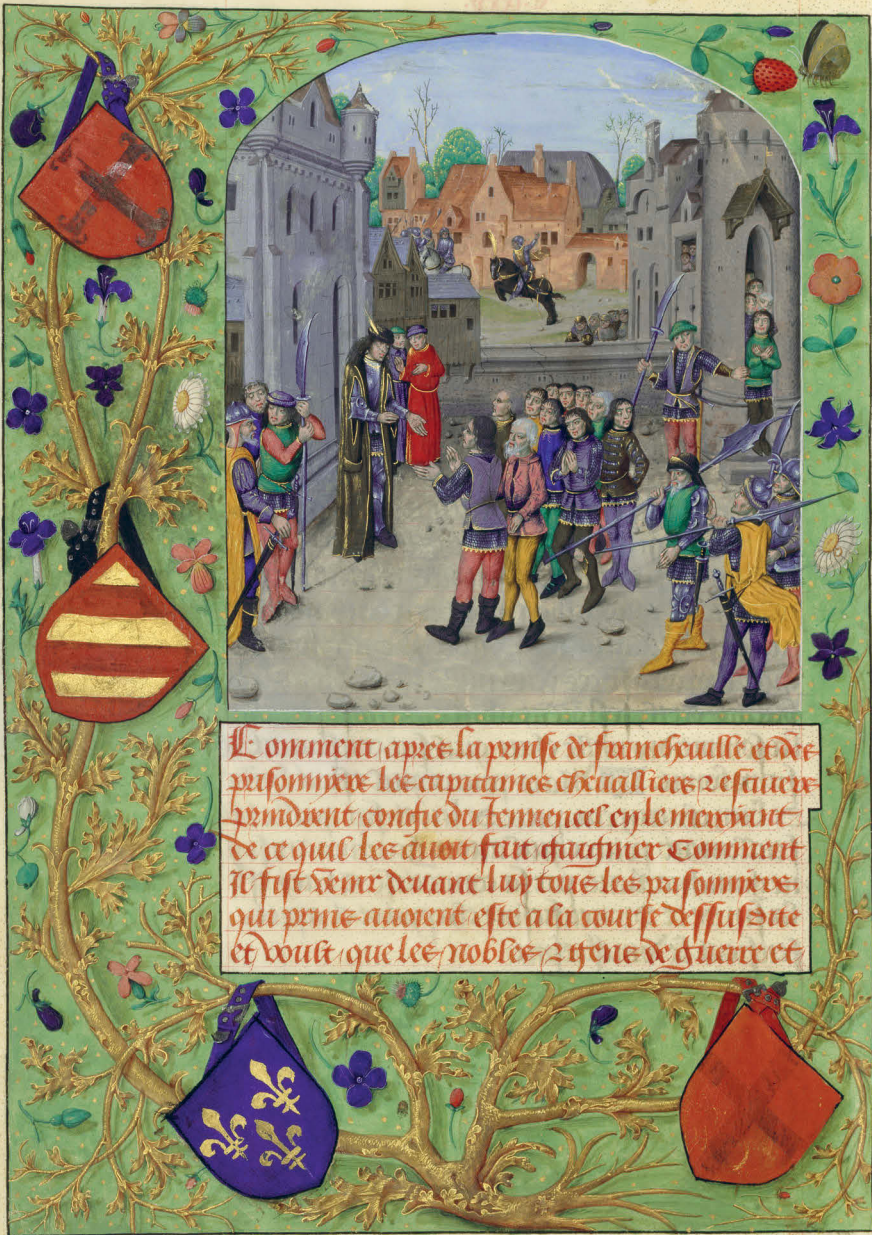 Comment apres la prinse de francheville et des
prisonnyers les capitaines chevalliers ⁊ escuiers
prindrent congie du Jennencel en le mercyant
de ce quil les avoit fait gaignier Comment
Il fist venir devant luy tous les prisonnyers
qui prins avoient este a la course dessusdite
et voult que les nobles ⁊ gens de guerre et